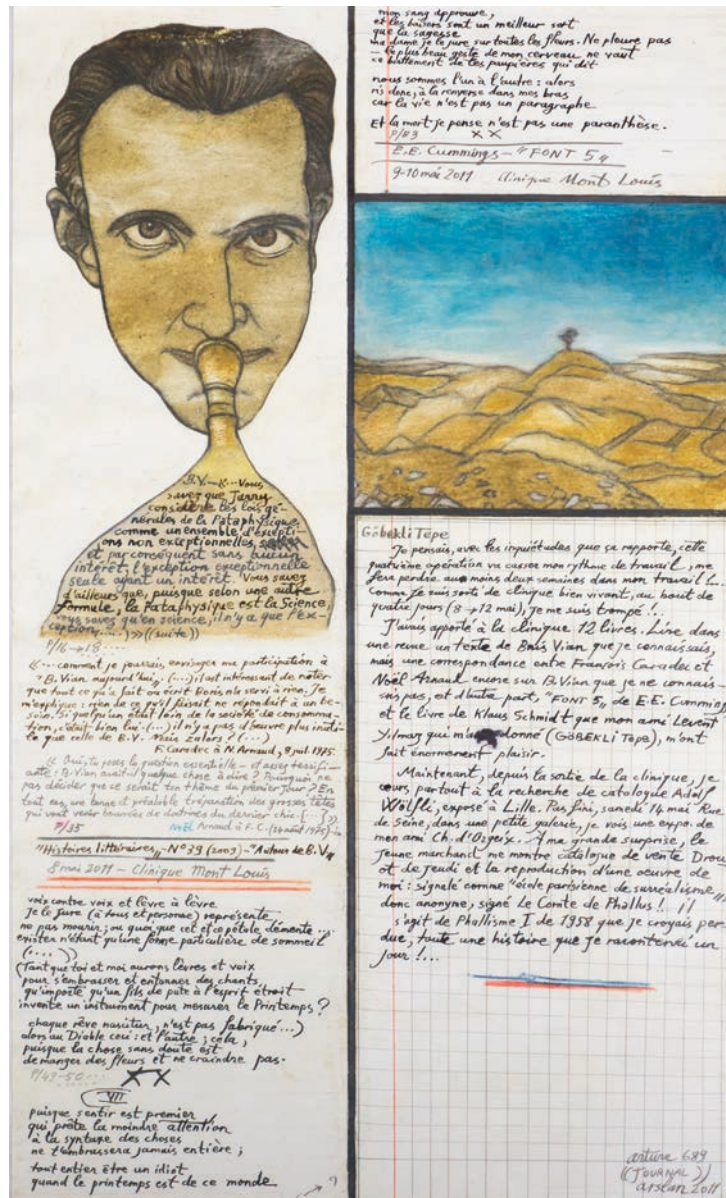 B.V.-«...Vous
savez que Jarry
considère les lois gé-
nérales de la Pataphysique
comme un ensemble d'excepti-
ons non exceptionnelles,
et par conséquent sans aucun
intérêt; l'exception exceptionnelle
seule ayant un intérêt. Vous savez
d'ailleurs que, puisque selon une autre
formule, la Pataphysique est la Science,
vous savez qu'en science, il n'y a que l'ex-
ception....)»((suite))
P/16→18....
«...comment je pourrais envisager ma participation à
"B.Vian aujourd'hui. (...) il est intéressant de noter
que tout ce qu'a fait ou écrit Boris n'a servi à rien. Je
m'explique: rien de ce qu'il faisait ne répondait à un be-
soin. Si quelqu'un était loin de la société de consomma-
tion, c'était bien lui-(...) il n'y a pas d'œuvre plus inuti-
le que celle de B.V. Mais zalors? (...)
F. Caradec à N. Arnaud, 8 juil. 1975.
« Oui, tu poses la question essentielle - et assez terrifi-
ante: B.Vian avait-il quelque chose à dire? Pourquoi ne
pas décider que ce serait ton thème du premier jour? En
tout cas, une bonne et préalable trépanation des grosses têtes
qui vont venir bourrées de doctrines du dernier chic-[...]».
P/35 Noël Arnaud à F.C. (1975)-in
"Histoires littéraires"-N°39 (2009)-"Autour de B.V"
8 mai 2011 - Clinique Mont Louis
voix contre voix et lèvre à lèvre
je le jure (à tous et personne) représente
ne pas mourir; ou quoi que cet et ce pétale démente...
exister n'étant qu'une forme particulière de sommeil
(....))
(Tant que toi et moi aurons lèvres et voix
pour s'embrasser et entonner des chants
qu'importe qu'un fils de pute à l'esprit étroit
invente un instrument pour mesurer le Printemps?
chaque rêve nascitur, n'est pas fabriqué...)
alors au Diable ceci: et l'autre; cela,
puisque la chose sans doute est
de manger des fleurs et ne craindre pas.
P/49-50....
XX
VII
puisque sentir est premier
qui prête la moindre attention
à la syntaxe des choses
ne t'embrassera jamais entière;
tout entier être un idiot
quand le printemps est de ce monde
mon sang approuve,
et les baisers sont un meilleur sort
que la sagesse
ma dame je le jure sur toutes les fleurs. Ne pleure pas
- le plus beau geste de mon cerveau ne vaut
ce battement de tes paupières qui dit
nous sommes l'un à l'autre: alors
ris donc, à la renverse dans mes bras
car la vie n'est pas un paragraphe
Et la mort je pense n'est pas une paranthèse.
P/83 XX
E.E. Cummings-"FONT 5"
9-10 mai 2011 Clinique Mont Louis
Göbekli Tepe
Je pensais, avec les inquiétudes que ça rapporte, cette
quatrième opération va casser mon rythme de travail, me
fera perdre au moins deux semaines dans mon travail!...
Comme je suis sorti de clinique bien vivant, au bout de
quatre jours (8→12 mai), je me suis trompé!..
J'avais apporté à la clinique 12 livres. Livre dans
une revue un texte de Boris Vian que je connaissais,
mais une correspondance entre François Caradec et
Noël Arnaud encore sur B.Vian que je ne connais-
sais pas, et d'autre part, "FONT 5" de E.E. Cummings
et le livre de Klaus Schmidt que mon ami Levent
Yılmaz qui m'a donné (GÖBEKLİ Tepe), m'ont
fait énormément plaisir.
Maintenant, depuis la sortie de la clinique, je
cours partout à la recherche de catalogue Adolf
Wölfli, exposé à Lille. Pas fini, samedi 14 mai Rue
de Seine, dans une petite galerie, je vois une expo. de
mon ami Ch. d'Orgeix. À ma grande surprise, le
jeune marchand me montre catalogue de vente Drou-
ot de jeudi et la reproduction d'une oeuvre de
moi: signalé comme "école parisienne de surréalisme"
donc anonyme, signé Le Comte de Phallus! Il
s'agit de Phallisme I de 1958 que je croyais per-
due, toute une histoire que je raconterai un
jour!...
arture 689
((JOURNAL))
arslan 2011